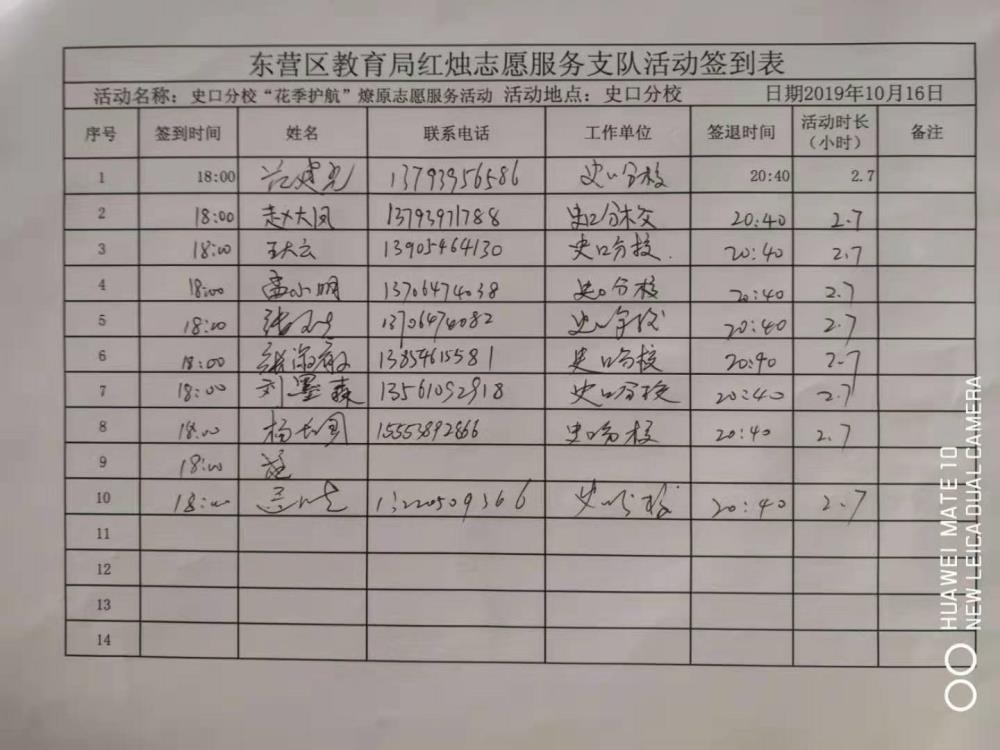 东营区教育局红烛志愿服务支队活动签到表
活动名称：史口分校“花季护航”燎原志愿服务活动 活动地点：史口分校 日期2019年10月16日
序号 签到时间 姓名 联系电话 工作单位 签退时间 活动时长（小时） 备注
1 18:00 13793956586 史口分校 20:40 2.7
2 18:00 赵大凤 13793971788 史口分校 20:40 2.7
3 18:00 王大云 13905464130 史口分校. 20:40 2.7
4 18:00 孟小明 13706474038 史口分校 20:40 2.7
5 18:00 13706474082 史口分校 20:40 2.7
6 18:00 13854615581 史口分校 20:40 2.7
7 18:00 刘墨森 13561092918 史口分校 20:40 2.7
8 18:00 杨大国 15553892866 史口分校 20:40 2.7
9 18:00
10 18:00 13220509366 史口分校 20:40 2.7
11
12
13
14
HUAWEI MATE 10
NEW LEICA DUAL CAMERA